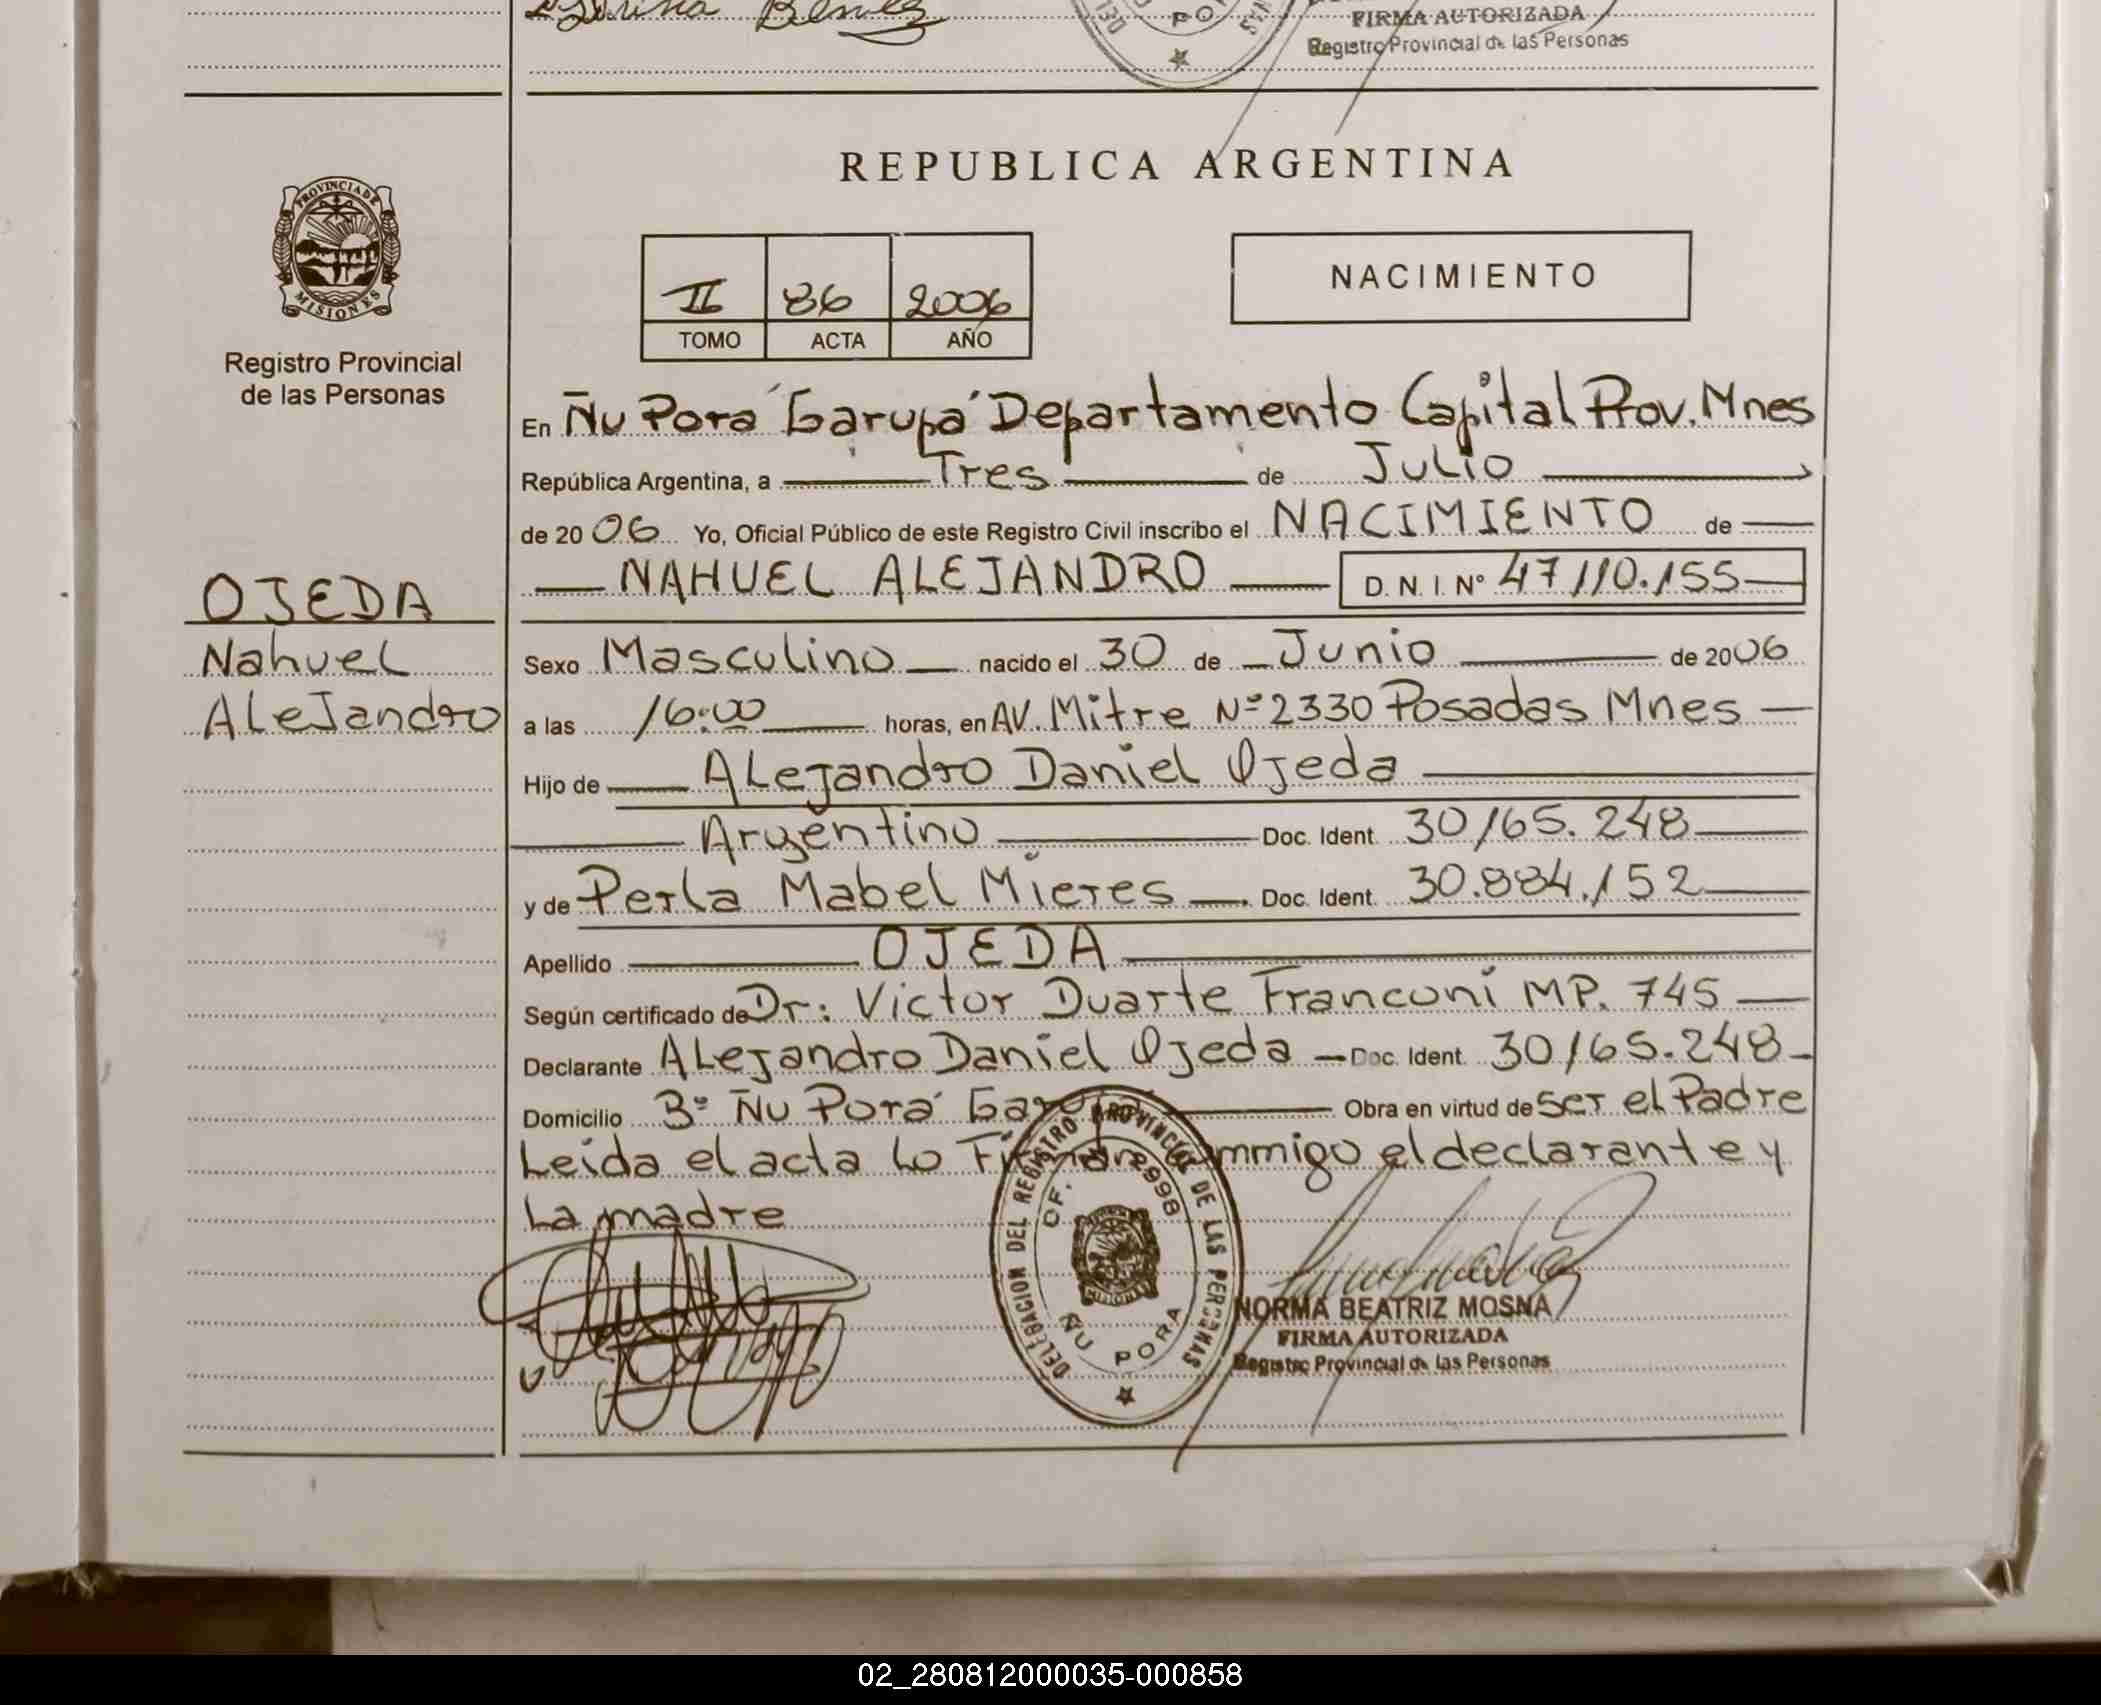 Benitez
DEL
PORA
FIRMA AUTORIZADA
Registro Provincial de las Personas
REPUBLICA ARGENTINA
PROVINCIA DE
MISIONES
Registro Provincial
de las Personas
II 86 2006
TOMO ACTA AÑO
NACIMIENTO
En Ñu Porá Garupá Departamento Capital Prov. Mnes
República Argentina, a Tres de Julio
de 2006 Yo, Oficial Público de este Registro Civil inscribo el NACIMIENTO de
NAHUEL ALEJANDRO D. N. I. Nº 47/110.155
OJEDA
Nahuel
Alejandro
Sexo Masculino nacido el 30 de Junio de 2006
a las 16:00 horas, en AV. Mitre Nº 2330 Posadas Mnes
Hijo de Alejandro Daniel Ojeda
Argentino Doc. Ident. 30165.248
y de Perla Mabel Mieres Doc. Ident. 30.884.152
Apellido OJEDA
Según certificado de Dr: Victor Duarte Franconi MP. 745
Declarante Alejandro Daniel Ojeda Doc. Ident. 30165.248
Domicilio Bº Ñu Porá Garupá Obra en virtud de ser el Padre
Leida el acta lo Firman conmmigo el declarante y
La madre
DELEGACION DEL REGISTRO PROVINCIAL DE LAS PERSONAS
OF. 2998
MISIONES
ÑU PORA
NORMA BEATRIZ MOSNA
FIRMA AUTORIZADA
Registro Provincial de las Personas
02_280812000035-000858